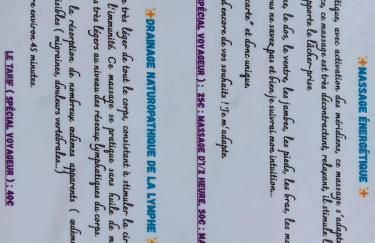 ✨MASSAGE ÉNERGÉTIQUE ✨
tique, avec activation des méridiens, ce massage s'adapte
, ce massage est très décontractant, relaxant, il stimule l
pporte le lâcher-prise
carte" et donc unique.
e, le dos, le ventre, les jambes, les pieds, les bras, les m
us ne savez pas et bien je suivrai mon intuition...
d encore de vos souhaits ! Je m'adapte.
SPÉCIAL VOYAGEUR ) : 25€ : MASSAGE D'1/2 HEURE, 50€ : MA
✨DRAINAGE NATUROPATHIQUE DE LA LYMPHE ✨
e très léger de tout le corps, consistant à stimuler la cir
l'immunité. Ce massage se pratique sans huile de m
s très légers au niveau des réseaux lymphatiques du corps.
la résorption de nombreux œdèmes apparents ( œdèm
isibles ( migraines, douleurs vertébrales...)
re environ 45 minutes.
LE TARIF ( SPÉCIAL VOYAGEUR ) : 40€